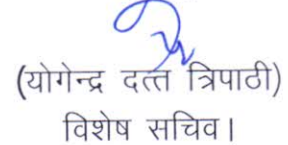 (योगेन्द्र दत्त त्रिपाठी)
विशेष सचिव।